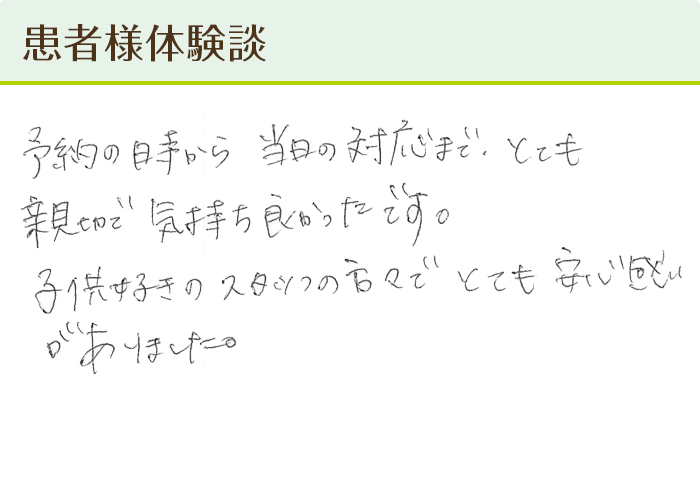 患者様体験談
予約の時から 当日の対応まで、とても
親切で 気持ち良かったです。
子供好きのスタッフの方々で とても 安心感
がありました。